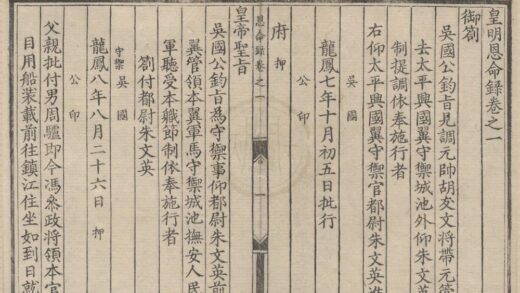 皇明恩命錄卷之一
御劄
吳國公鈞旨見調元帥胡友文將帶元管
去太平興國翼守禦城池外仰朱文英
制提調依奉施行者
右仰太平興國翼守禦官都尉朱文英准
吳國
龍鳳七年十月初五日批行
公印
府 押
恩命錄卷之一
一
皇帝聖旨
吳國公鈞旨為守禦事仰都尉朱文英前
翼管領本翼軍馬守禦城池撫安人民
軍聽受本職節制依奉施行者
劄付都尉朱文英
守禦 吳國
龍鳳八年八月二十六日 押
公印
父親批付男周驢即今馮叅政將領本官
目用船装載前往鎮江住坐如到日就